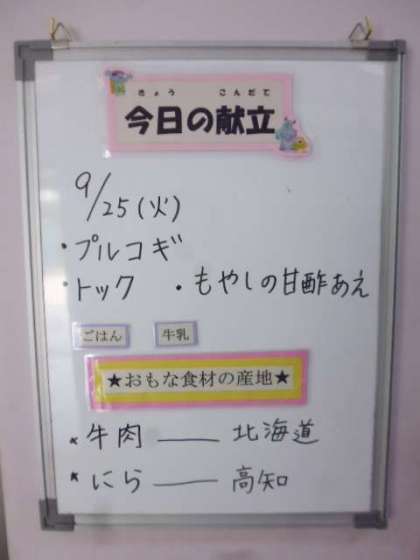 きょう こんだて
今日の献立
9/25(火)
・プルコギ
・トック ・もやしの甘酢あえ
ごはん 牛乳
★おもな食材の産地★
★牛肉――北海道
★にら――高知